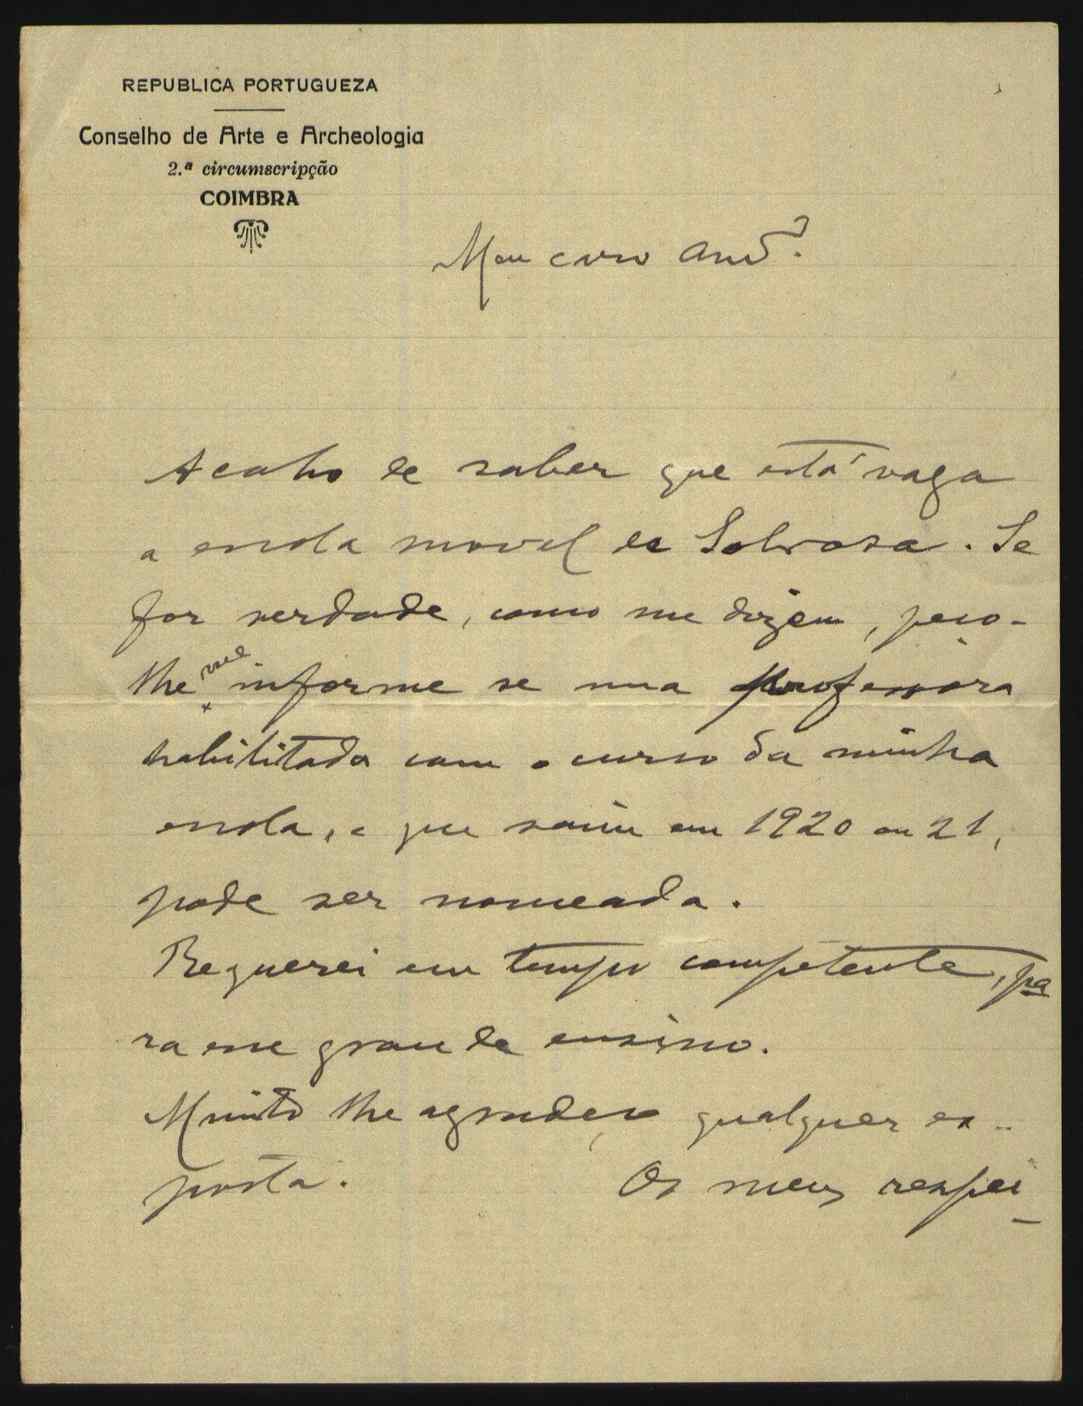 REPUBLICA PORTUGUEZA
Conselho de Arte e Archeologia
2.ª circumscripção
COIMBRA
Meu caro
Acabo de saber que está vaga
a escola movel de Sobrosa. Se
for verdade, como me dizem, peço-
lhe me informe se uma professora
habilitada com o curso da minha
escola, e que saíu em 1920 ou 21,
pode ser nomeada.
Requerei em tempo competente, pa
ra esse grau de ensino.
Muito lhe agradeço qualquer res-
posta. Os meus respei